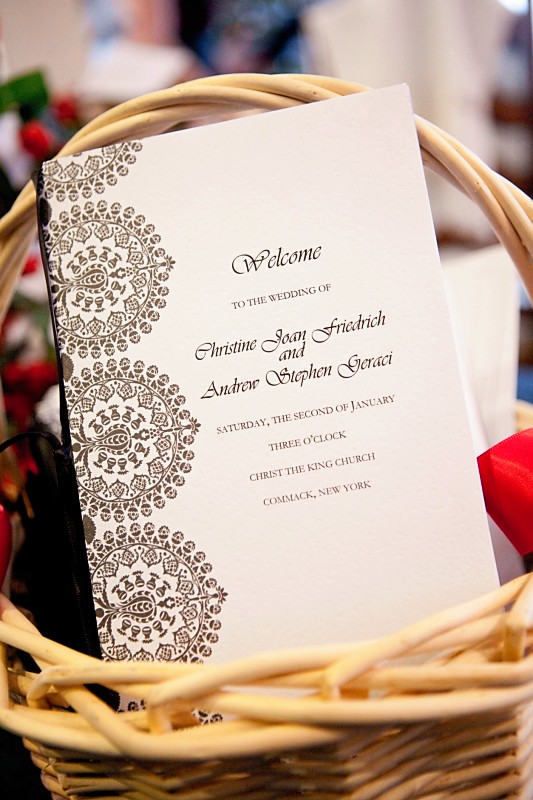 Welcome
TO THE WEDDING OF
Christine Joan Friedrich
and
Andrew Stephen Geraci
SATURDAY, THE SECOND OF JANUARY
THREE O'CLOCK
CHRIST THE KING CHURCH
COMMACK, NEW YORK